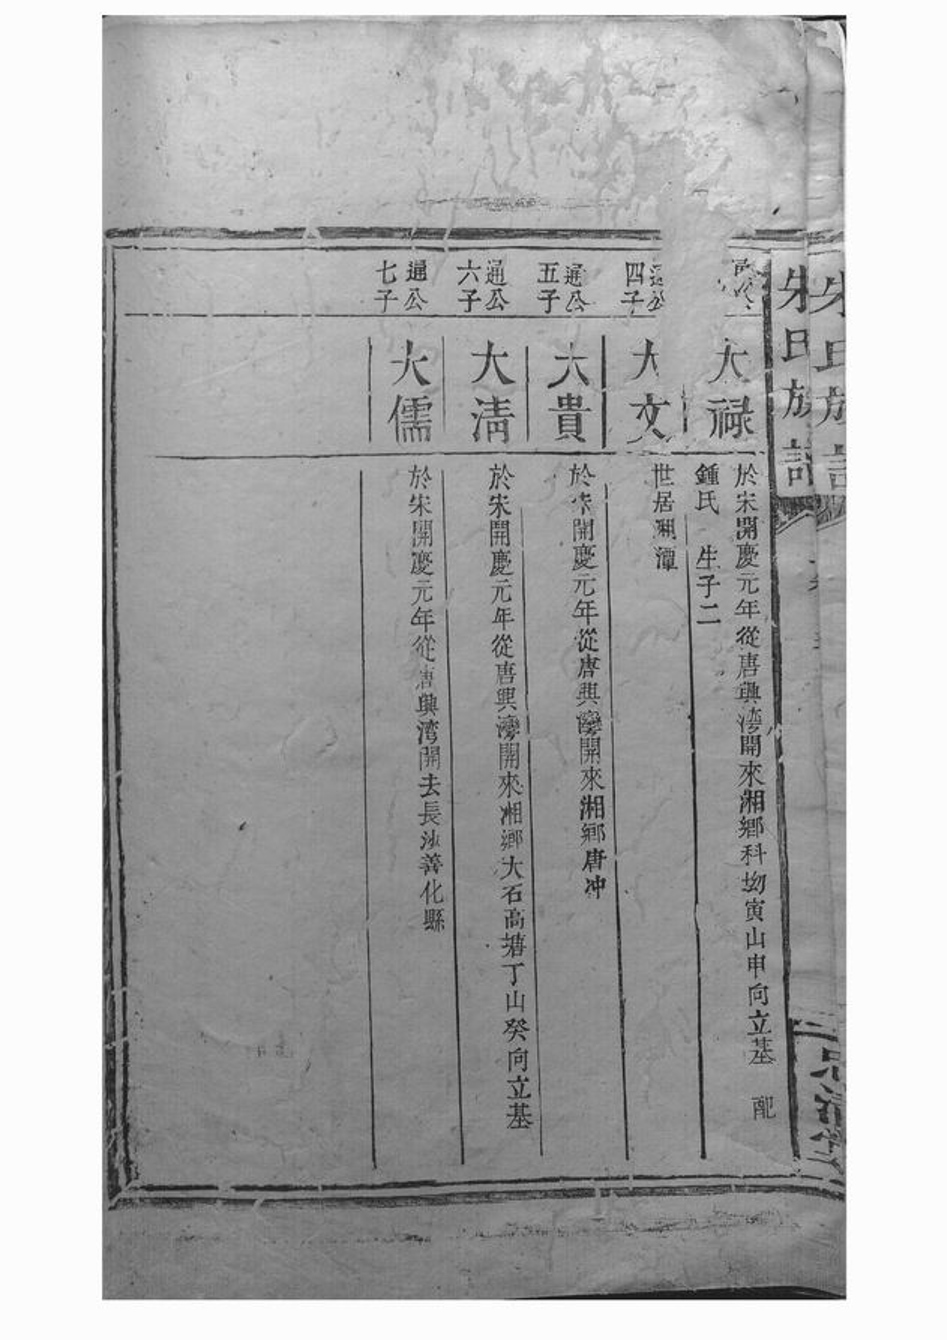 朱氏族
通公
大禄
於宋開慶元年從唐興灣開來湘鄉科坳寅山申向立基 配
鍾氏 生子二
通公
四子
大文
世居湘潭
通公
五子
大貴
於宋開慶元年從唐興灣開來湘鄉唐冲
通公
六子
大清
於宋開慶元年從唐興灣開來湘鄉大石高塘丁山癸向立基
通公
七子
大儒
於宋開慶元年從唐興湾開去長沙善化縣